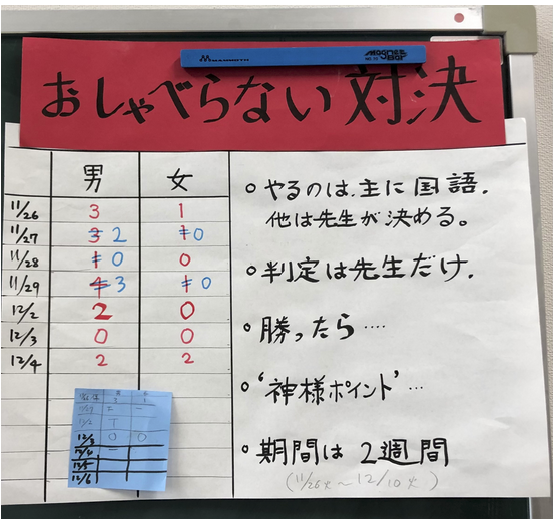 MAGNET BAR
おしゃべらない対決
男 女
11/26 3 1
11/27 3 2 1 0
11/28 1 0 0
11/29 4 3 1 0
12/2 2 0
12/3 0 0
12/4 2 2
12/3 0 0
12/4
12/5
12/6
○やるのは、主に国語.
他は先生が決める。
○判定は先生だけ.
○勝ったら....
○'神様ポイント'...
○期間は2週間
(11/26火〜12/10火)